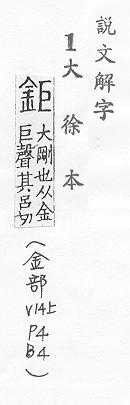 說文解字
1大徐本
鉅
大剛也从金
巨聲其呂切
(金部
V14上
P4
B4
)